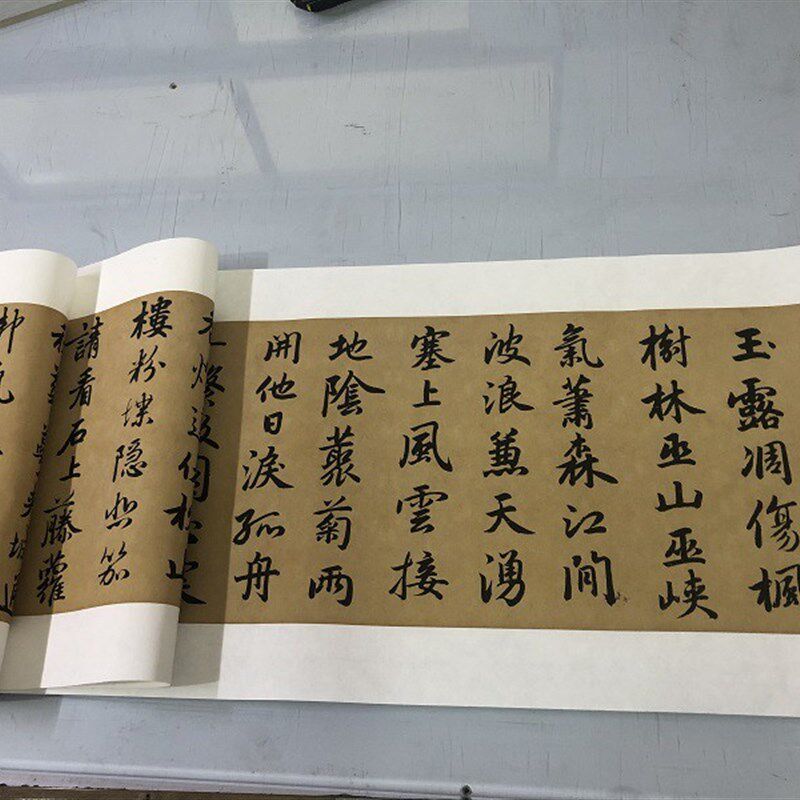 玉露凋傷楓
樹林巫山巫峽
氣蕭森江間
波浪兼天湧
塞上風雲接
地陰叢菊兩
開他日淚孤舟
樓粉堞隱悲笳
請看石上藤蘿